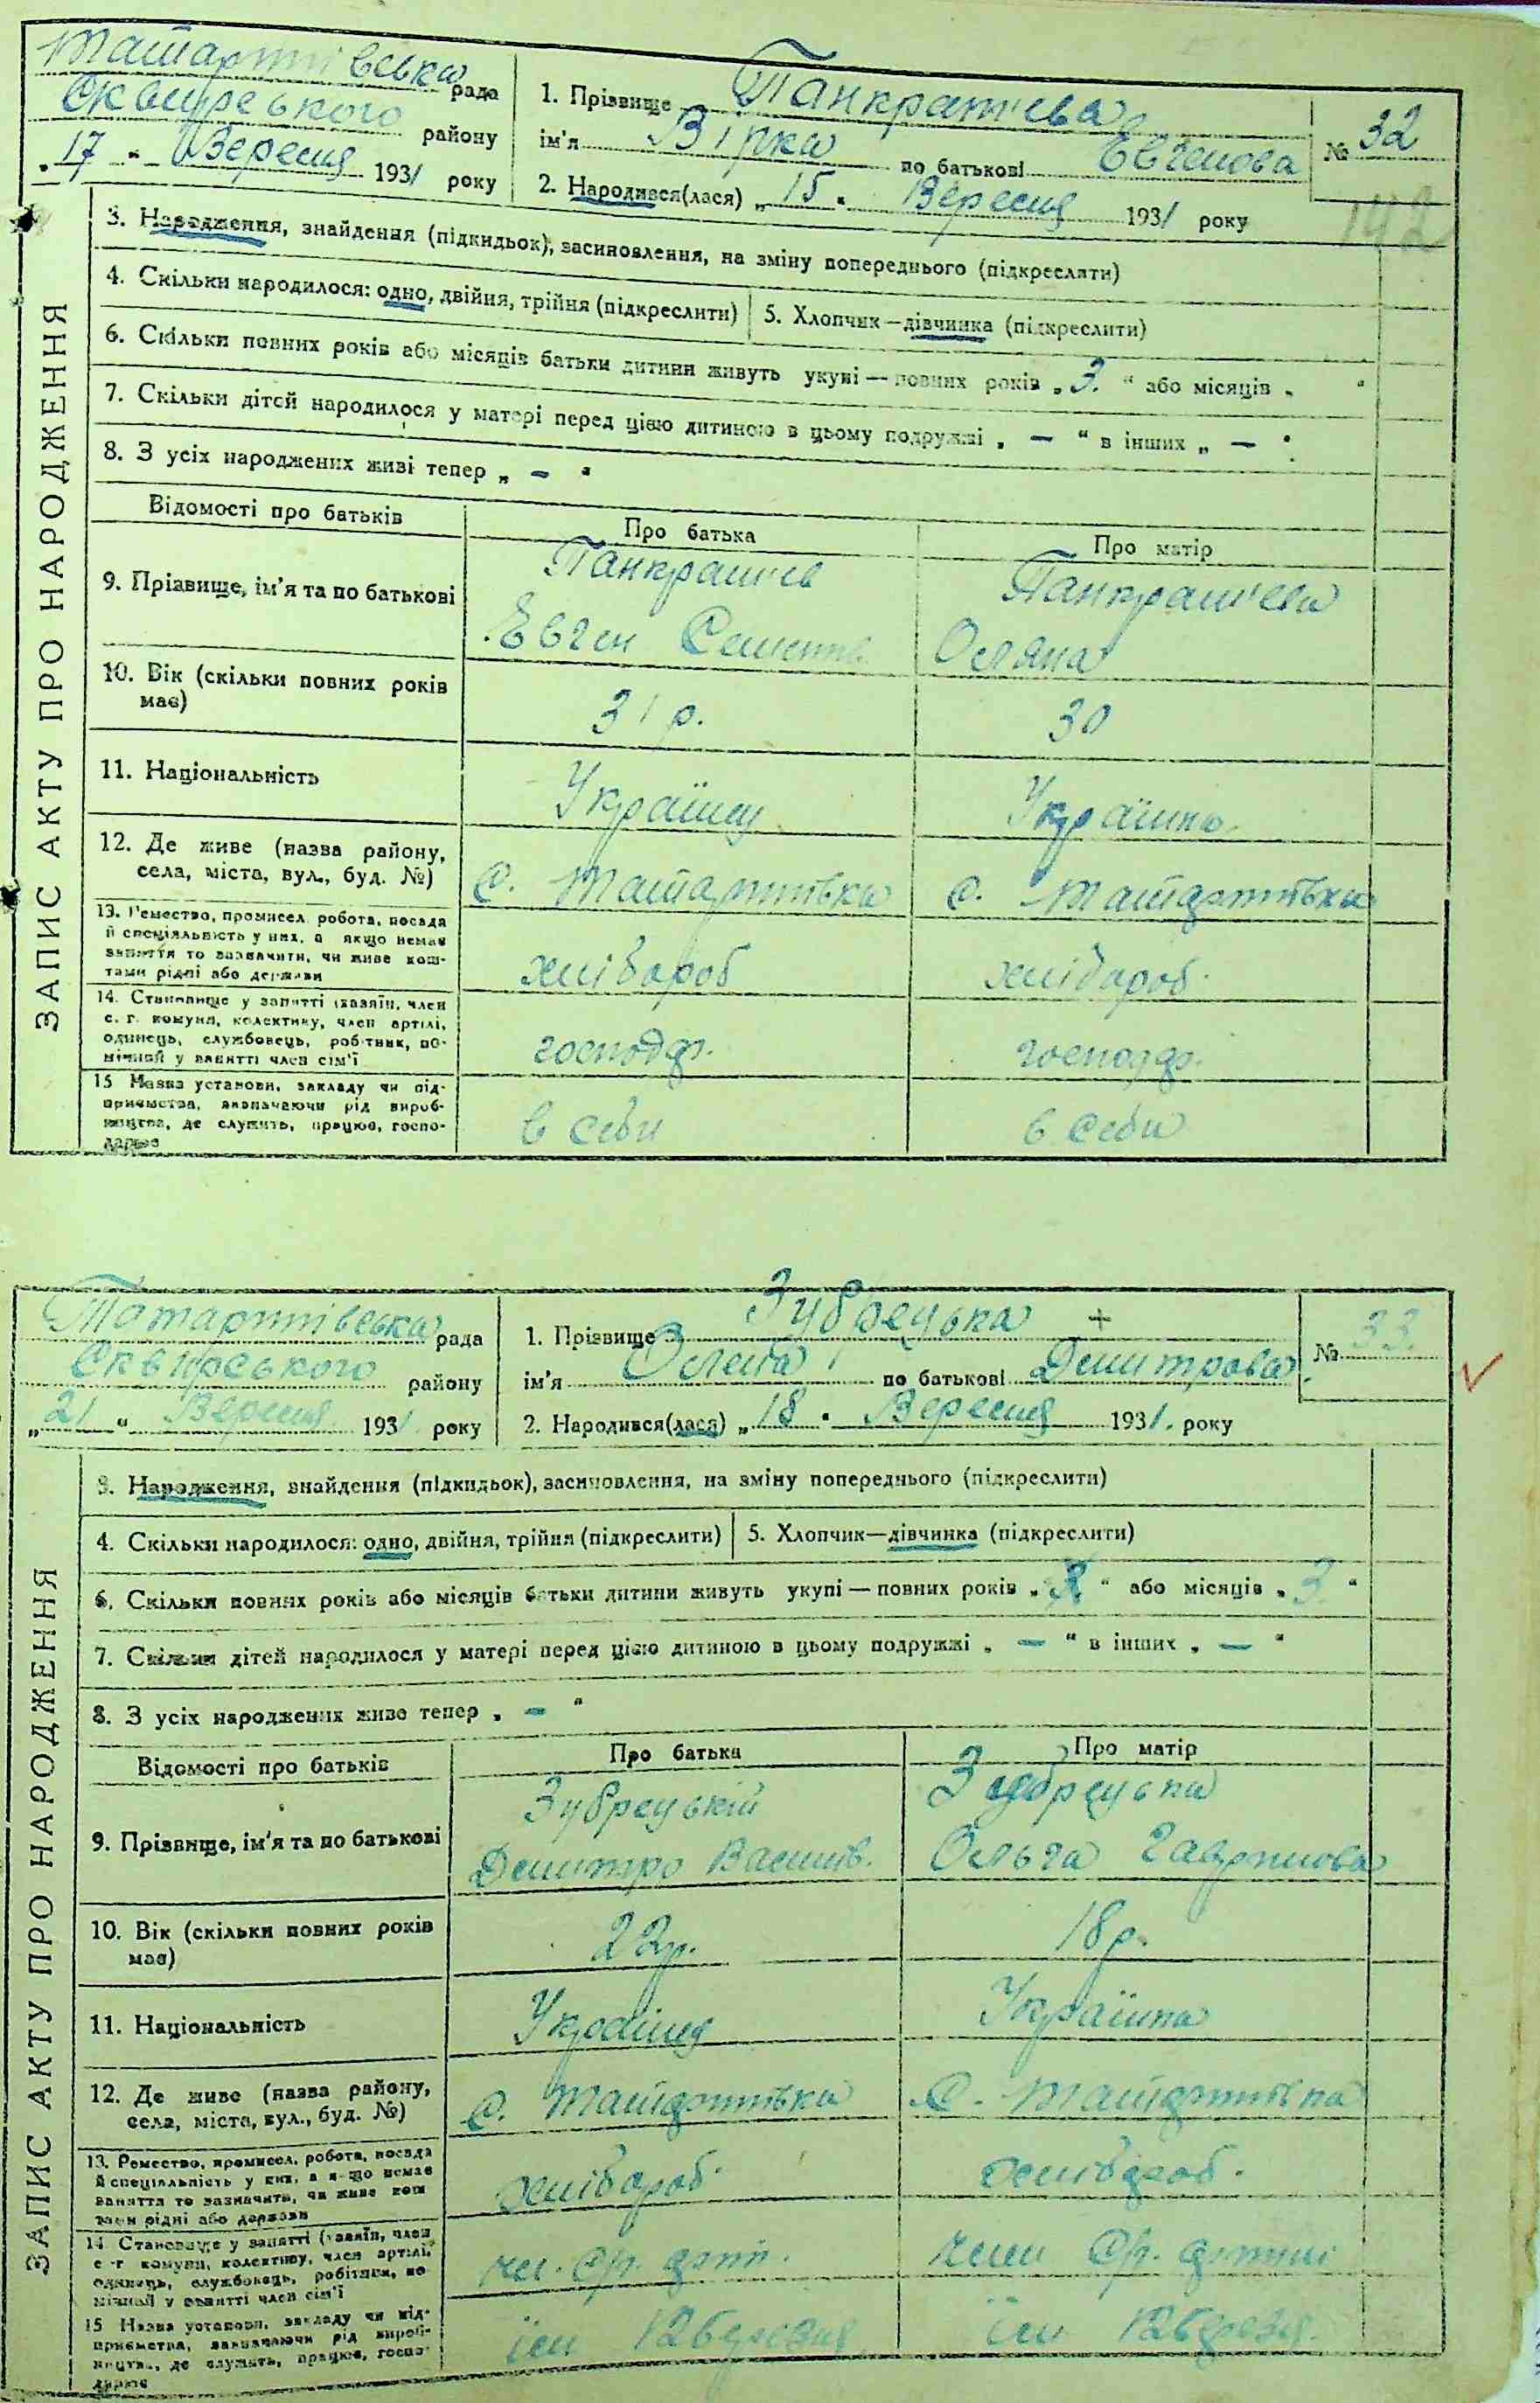 Татартівська рада
Сквирського району
„17“ Вересня 1931 року
1. Прізвище Панкратієва
ім'я Вірка по батькові Евгенова
2. Народився(лася) „15“ Вересня 1931 року
№ 32
142
ЗАПИС АКТУ ПРО НАРОДЖЕННЯ
3. Народження, знайдення (підкидьок), засиновлення, на зміну попереднього (підкреслити)
4. Скільки народилося: одно, двійня, трійня (підкреслити) 5. Хлопчик—дівчинка (підкреслити)
6. Скільки повних років або місяців батьки дитини живуть укупі — повних років „3.“ або місяців „ “
7. Скільки дітей народилося у матері перед цією дитиною в цьому подружжі „—“ в інших „—“
8. З усіх народжених живі тепер „–“
Відомості про батьків Про батька Про матір
9. Прізвище, ім'я та по батькові
Панкратієв Панкратієва
Евген Семенів Оляна
10. Вік (скільки повних років має) 31 р. 30
11. Національність Українец Українка
12. Де живе (назва району,
села, міста, вул., буд. №) с. Татартівка с. Татартівка
13. Ремество, промисел, робота, посада
й спеціяльність у них, а якщо немає
заняття то зазначити, чи живе кош-
тами рідні або держави
хлібороб хлібороб.
14. Становище у занятті (хазяїн, член
с. г. комуни, колективу, член артілі,
одинець, службовець, робітник, по-
мічний у занятті член сім'ї
господар. господар.
15 Назва установи, закладу чи під-
приємства, визначаючи рід вироб-
ництва, де служить, працює, госпо-
дарює
в себи в себи
Татартівська рада
Сквирського району
„21“ Вересня 1931 року
1. Прізвище Зубрецька +
ім'я Олена по батькові Демитрова
2. Народився(лася) „18“ Вересня 1931. року
№ 33.
ЗАПИС АКТУ ПРО НАРОДЖЕННЯ
3. Народження, знайдення (підкидьок), засиновлення, на зміну попереднього (підкреслити)
4. Скільки народилося: одно, двійня, трійня (підкреслити) 5. Хлопчик—дівчинка (підкреслити)
6. Скільки повних років або місяців батьки дитини живуть укупі — повних років „ “ або місяців „3“
7. Скільки дітей народилося у матері перед цією дитиною в цьому подружжі „—“ в інших „—“
8. З усіх народжених живе тепер „–“
Відомості про батьків Про батька Про матір
9. Прізвище, ім'я та по батькові
Зубрецькій Зубрецька
Демитро Васильів. Ольга Гаврилова
10. Вік (скільки повних років має) 22р. 18р.
11. Національність Українец Українка
12. Де живе (назва району,
села, міста, вул., буд. №) с. Татартівка с. Татартівка
13. Ремество, промисел, робота, посада
й спеціяльність у них, а якщо немає
заняття то зазначити, чи живе кош
тами рідні або держави
хлібороб. хлібороб.
14. Становище у занятті (хазяїн, член
с-г комуни, колективу, член артілі,
одинець, службовець, робітник, по
мічний у занятті член сім'ї
чл. с/г. арт. член с/г. артилі
15 Назва установи, закладу чи під-
приємства, визначаючи рід вироб-
ництва, де служить, працює, госпо-
дарює
ім 12березня ім 12березня.